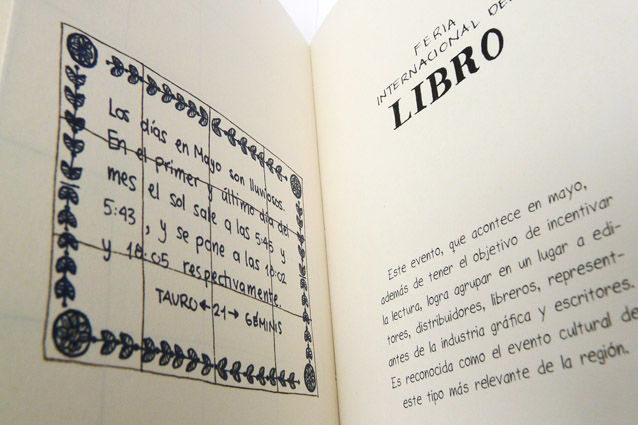 Los días en Mayo son lluviosos.
En el primer y último día del
mes el sol sale a las 5:45 y
5:43, y se pone a las 18:02
y 18:05 respectivamente.
TAURO ← 21 → GÉMINIS
FERIA
INTERNACIONAL DEL
LIBRO
Este evento, que acontece en mayo,
además de tener el objetivo de incentivar
la lectura, logra agrupar en un lugar a edi-
tores, distribuidores, libreros, represent-
antes de la industria gráfica y escritores.
Es reconocida como el evento cultural de
este tipo más relevante de la región.